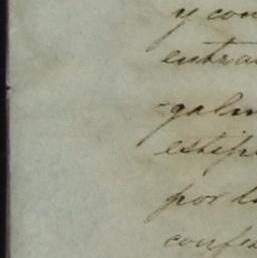 y con
entra
galm
estip
por l
confe